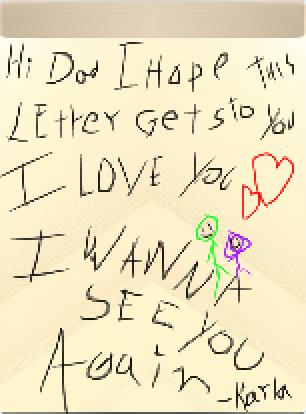 Hi Dad I Hope THIS
LEtter Gets to You
I LOVE You
I WANNA
SEE YOU
Again
-Karla